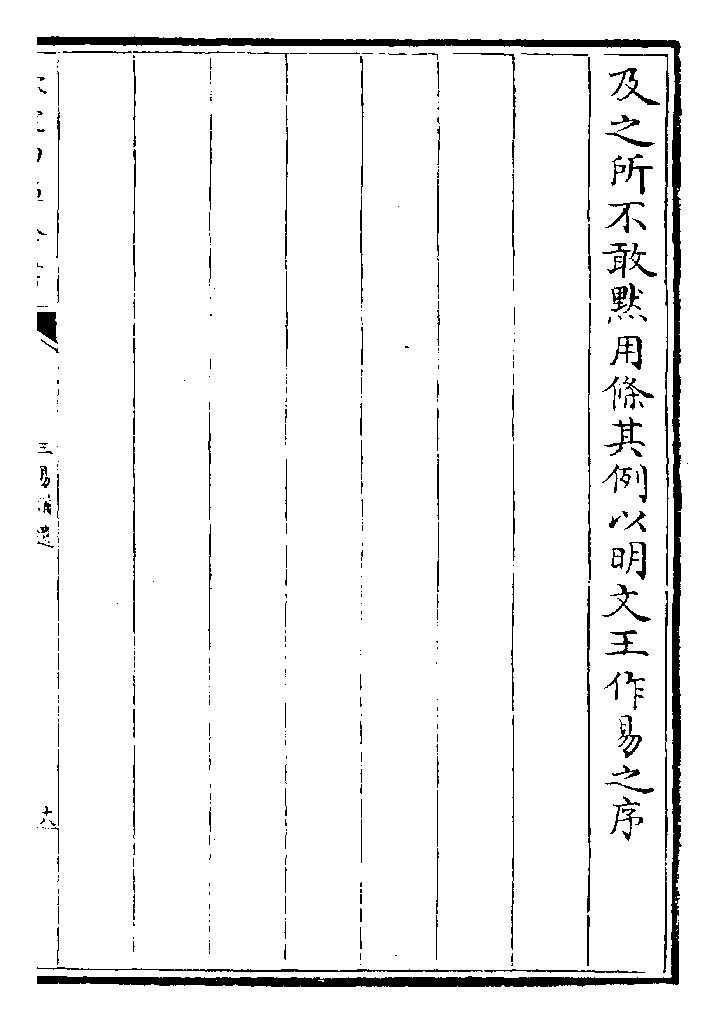 及之所不敢黙用條其例以明文王作易之序
三易備遺